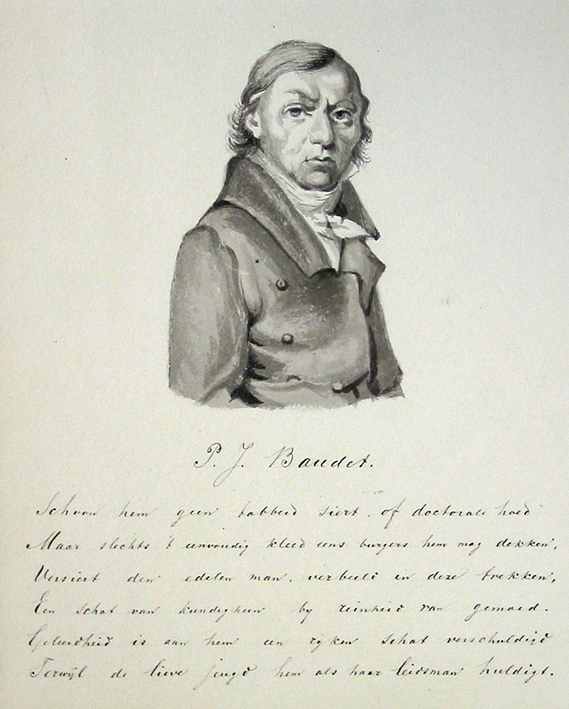 P. J. Baudet.
Schoon hem geen tabbeid siert, of doctorale hoed
Maar slechts 't eenvoudig kleed eens burgers hem mag dekken,
Versiert den edelen man, verbeeld in deze trekken,
Een schat van kundigheen by reinheid van gemoed.
Geleerdheid is aan hem een ryken schat verschuldigd
Terwyl de lieve jeugd hem als haar leidsman huldigt.